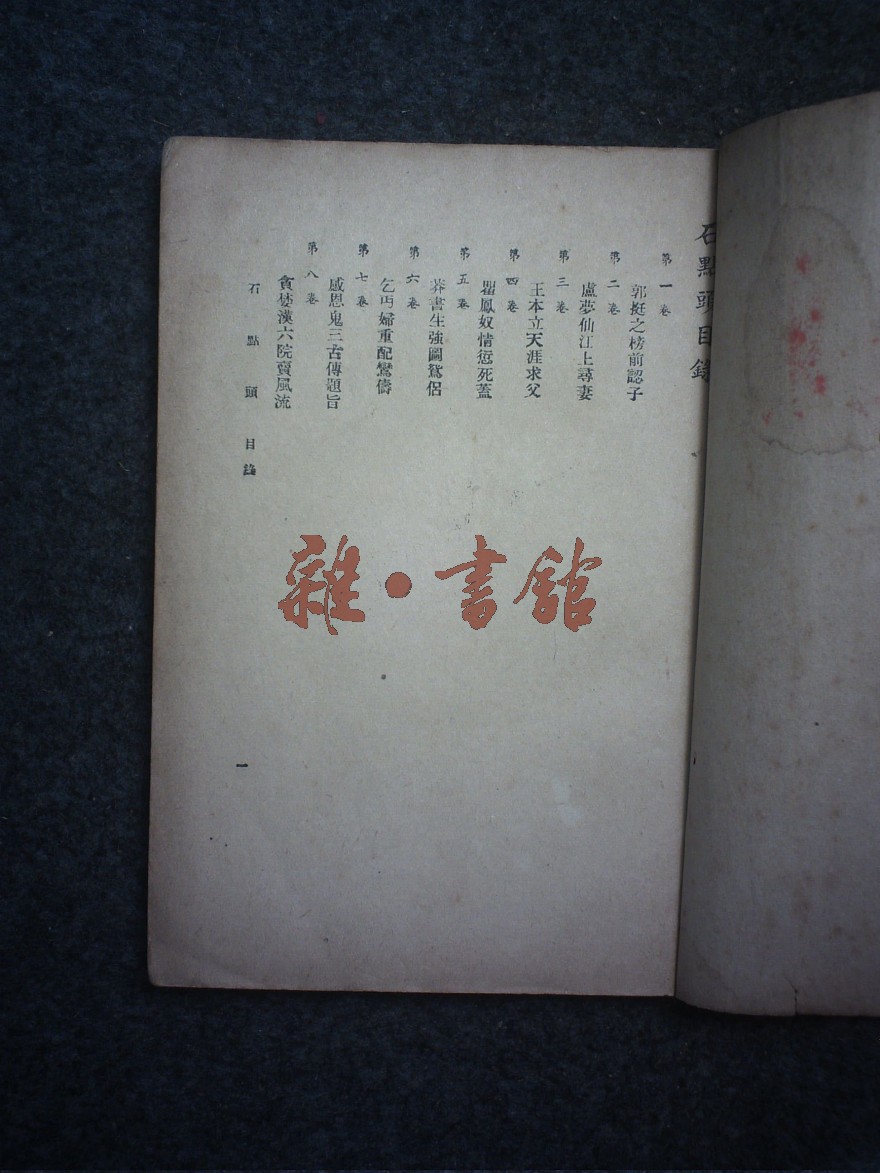 石點頭目錄
第一卷
郭挺之榜前認子
第二卷
盧夢仙江上尋妻
第三卷
王本立天涯求父
第四卷
瞿鳳奴情愆死蓋
第五卷
莽書生強圖鴛侶
第六卷
乞丐婦重配鸞儔
第七卷
感恩鬼三古傳題旨
第八卷
貪婪漢六院賣風流
石點頭 目錄
一
雜·書館